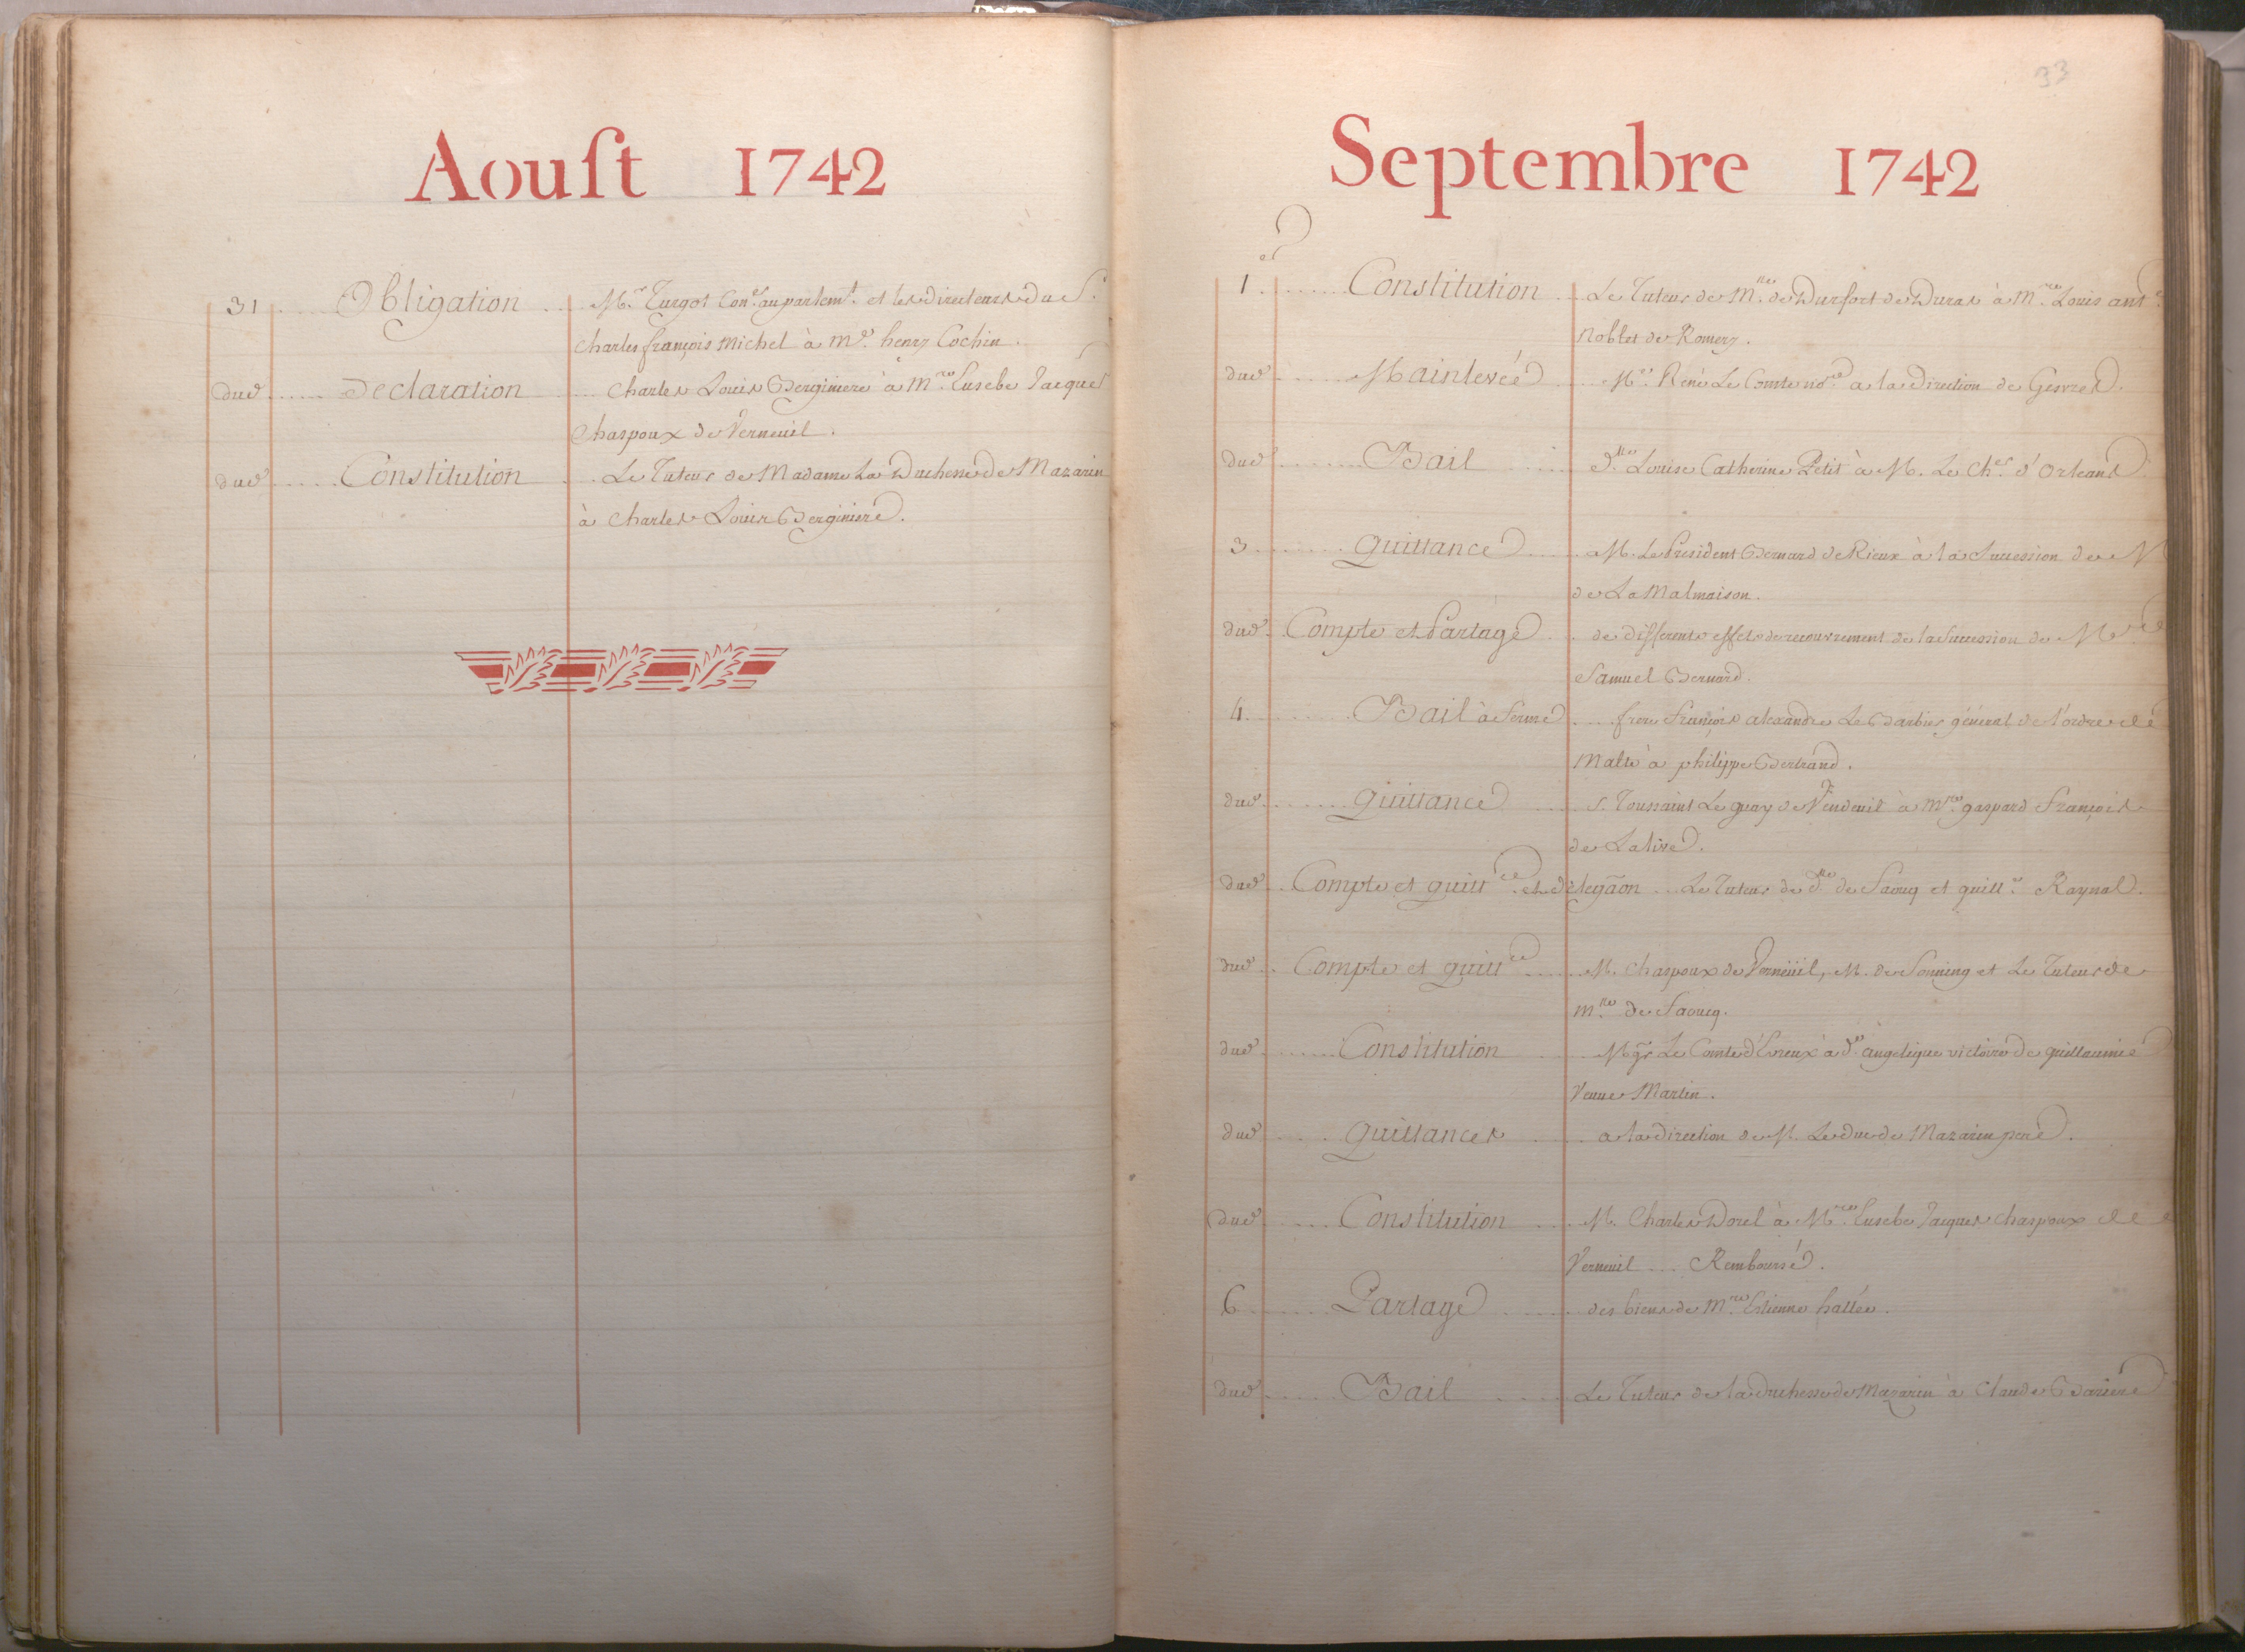 Aoust 1742
31 Obligation M.r Turgot Con.er au parlem.t et les directeurs du S.r
Charles françois Michel à M.e henry Cochin.
dud Declaration Charles Louis Berginiere à M.re Eusebe Jacques
Chaspoux de Verneuil.
dud Constitution Le Tuteur de Madame La Duchesse de Mazarin
à Charles Louis Berginiere.
33
Septembre 1742
1er Constitution Le Tuteur de M.lle de Durfort de Duras à M.re Louis ant.e
Noblet de Romery.
dud Mainlevée M.e René Le Comte no.re a la direction de Gesvres.
dud Bail D.lle Louise Catherine Petit à M. Le Ch.er d'Orleans
3 Quittance M. Le President Bernard de Rieux à la Succession de M
de La Malmaison.
dud Compte et Partage de differents effets de recouvrement de la Succession de M.re
Samuel Bernard.
4 Bail à ferme frere françois alexandre Le Barbier général de l'ordre de
Malte à philippe Bertrand.
dud Quittance S. Toussaint Le guay de Vendeuil à M.re gaspard François
de Lalive.
dud Compte et quitt.ce et delegãon Le Tuteur de d.lle de Saouq et guill.e Raynal.
dud Compte et quitt.ce M. Chaspoux de Verneüil, M. de Sonning et Le Tuteur de
M.lle de Saoucq.
dud Constitution Mgr Le Comte d'Evreux à d.e angelique victoire de guillaumie
Veuve Martin.
dud Quittances a la direction de M. Le duc de Mazarin pere.
dud Constitution M. Charles Dorel à M.re Eusebe Jacques Chaspoux de
Verneuil Remboursé.
6 Partage des biens de M.re Etienne hallée.
dud Bail Le Tuteur de la duchesse de Mazarin à Claude Bariere